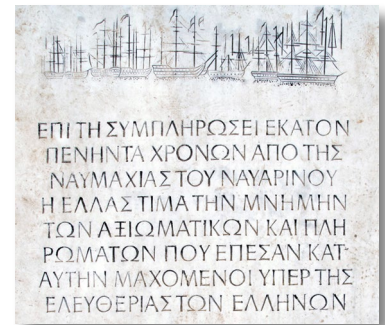 ΕΠΙ ΤΗ ΣΥΜΠΛΗΡΩΣΕΙ ΕΚΑΤΟΝ
ΠΕΝΗΝΤΑ ΧΡΟΝΩΝ ΑΠΟ ΤΗΣ
ΝΑΥΜΑΧΙΑΣ ΤΟΥ ΝΑΥΑΡΙΝΟΥ
Η ΕΛΛΑΣ ΤΙΜΑ ΤΗΝ ΜΝΗΜΗΝ
ΤΩΝ ΑΞΙΩΜΑΤΙΚΩΝ ΚΑΙ ΠΛΗ
ΡΩΜΑΤΩΝ ΠΟΥ ΕΠΕΣΑΝ ΚΑΤ-
ΑΥΤΗΝ ΜΑΧΟΜΕΝΟΙ ΥΠΕΡ ΤΗΣ
ΕΛΕΥΘΕΡΙΑΣ ΤΩΝ ΕΛΛΗΝΩΝ